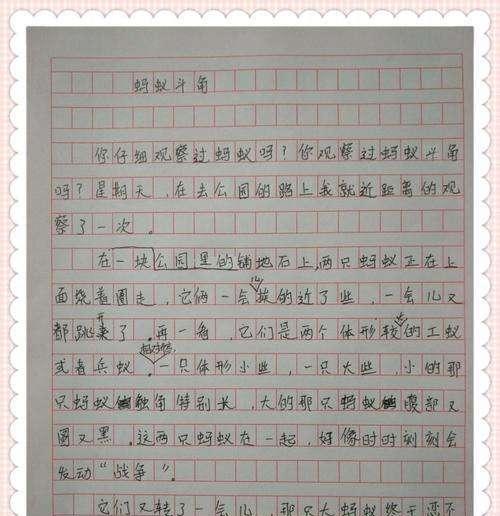 蚂蚁斗角
你仔细观察过蚂蚁吗？你观察过蚂蚁斗角
吗？星期天，在去公园的路上我就近距离的观
察了一次。
在一块公园里的铺地石上，两只蚂蚁正在上
面绕着圈走，它俩一会儿挨的近了些，一会儿又
都跳开了。再一看，它们是两个体形较大的工蚁
或者兵蚁。一只体形小些，一只大些，小的那
只蚂蚁触角特别长，大的那只蚂蚁腹部又
圆又黑。这两只蚂蚁在一起，好像时时刻刻会
发动“战争”。
它们又转了一会儿，那只大蚂蚁终于忍不